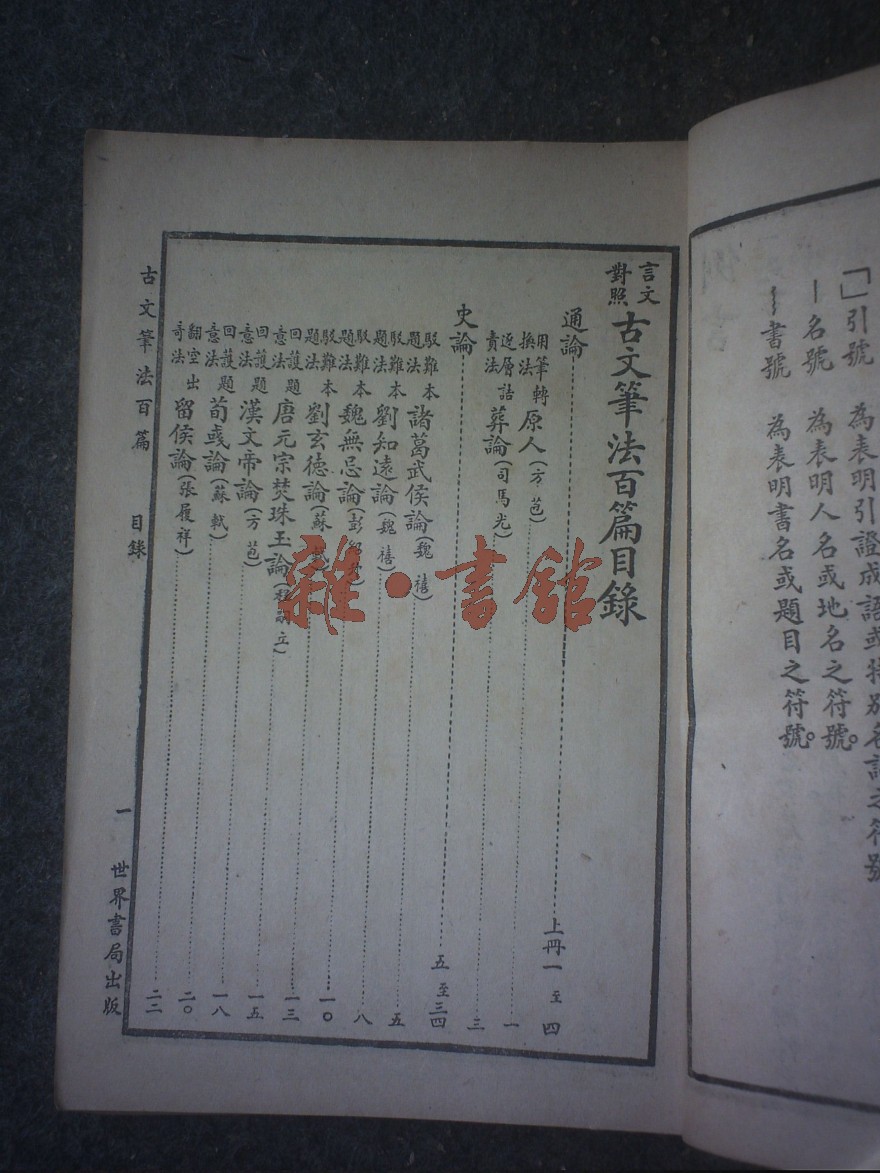 「」引號　為表明引證成語或特別名詞之符號
—名號　為表明人名或地名之符號。
﹏書號　為表明書名或題目之符號。
言文對照 古文筆法百篇目錄
通論……上冊一至四
用筆轉換法 原人(方苞)……一
逆層詰責法 葬論(司馬光)……三
史論……五至三四
駁難本題法 諸葛武侯論(魏禧)……五
駁難本題法 劉知遠論(魏禧)……八
駁難本題法 魏無忌論(彭……一〇
駁難本題法 劉玄德論(蘇……一三
回護題意法 唐元宗焚珠玉論(……立)……一五
回護題意法 漢文帝論(方苞)……一八
回護題意法 荀彧論(蘇軾)……二〇
翻空出奇法 留侯論(張履祥)……二二
古文筆法百篇　目錄　一　世界書局出版
雜·書館